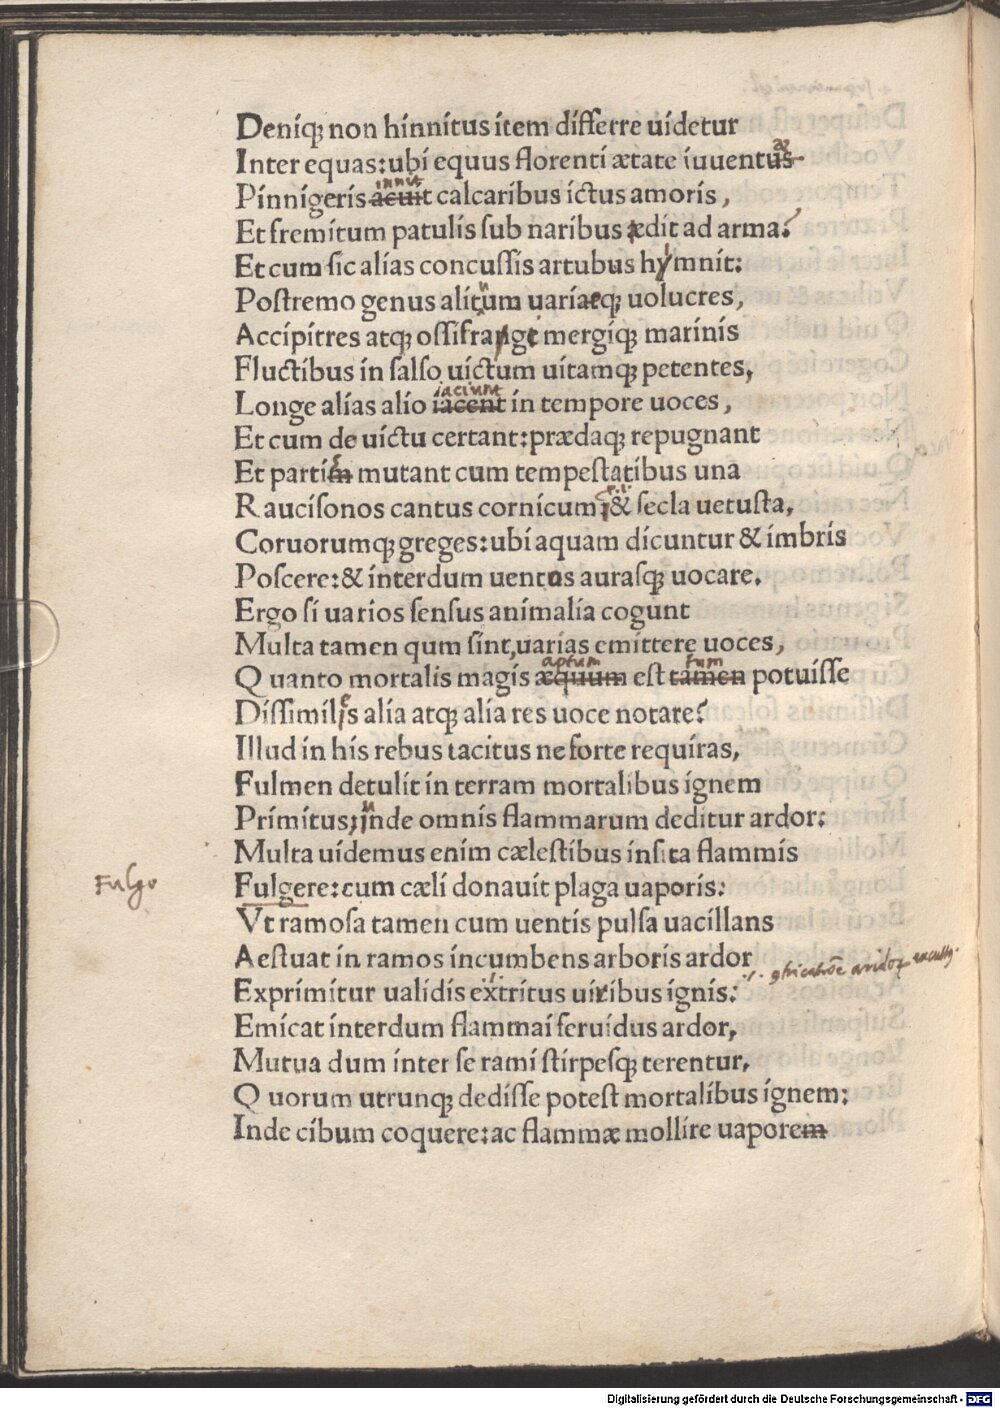 Deniqꝫ non hinnitus item differre uidetur
Inter equas:ubi equus florenti ætate iuuentus
innuit
Pinnigeris acuit calcaribus ictus amoris,
Et fremitum patulis sub naribus ædit ad arma?
Et cum sic alias concussis artubus hymnit:
Postremo genus alitum uariæqꝫ uolucres,
Accipitres atqꝫ ossifrange mergiqꝫ marinis
Fluctibus in salso uictum uitamqꝫ petentes,
iaciunt
Longe alias alio iacent in tempore uoces,
Et cum de uictu certant:prædaqꝫ repugnant
Et partim mutant cum tempestatibus una
Raucisonos cantus cornicum;& secla uetusta,
Coruorumqꝫ greges:ubi aquam dicuntur & imbris
Poscere:& interdum uentos aurasqꝫ uocare.
Ergo si uarios sensus animalia cogunt
Multa tamen qum sint,uarias emittere uoces,
aptum tum
Quanto mortalis magis æquum est tamen potuisse
Dissimilis alia atqꝫ alia res uoce notare?
Illud in his rebus tacitus ne forte requiras,
Fulmen detulit in terram mortalibus ignem
Primitus;inde omnis flammarum deditur ardor:
Multa uidemus enim cælestibus insita flammis
Fulgo
Fulgere:cum cæli donauit plaga uaporis:
Vt ramosa tamen cum uentis pulsa uacillans
Aestuat in ramos incumbens arboris ardor
Exprimitur ualidis extritus uiribus ignis:
Emicat interdum flammai feruidus ardor,
Mutua dum inter se rami stirpesqꝫ terentur,
Quorum utrunqꝫ dedisse potest mortalibus ignem:
Inde cibum coquere:ac flammæ mollire uaporem
Digitalisierung gefördert durch die Deutsche Forschungsgemeinschaft - DFG